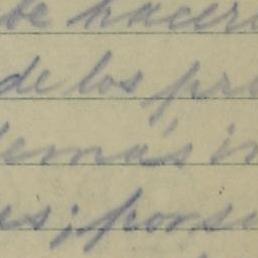 be hacer
de los pr
demás i
es; pors